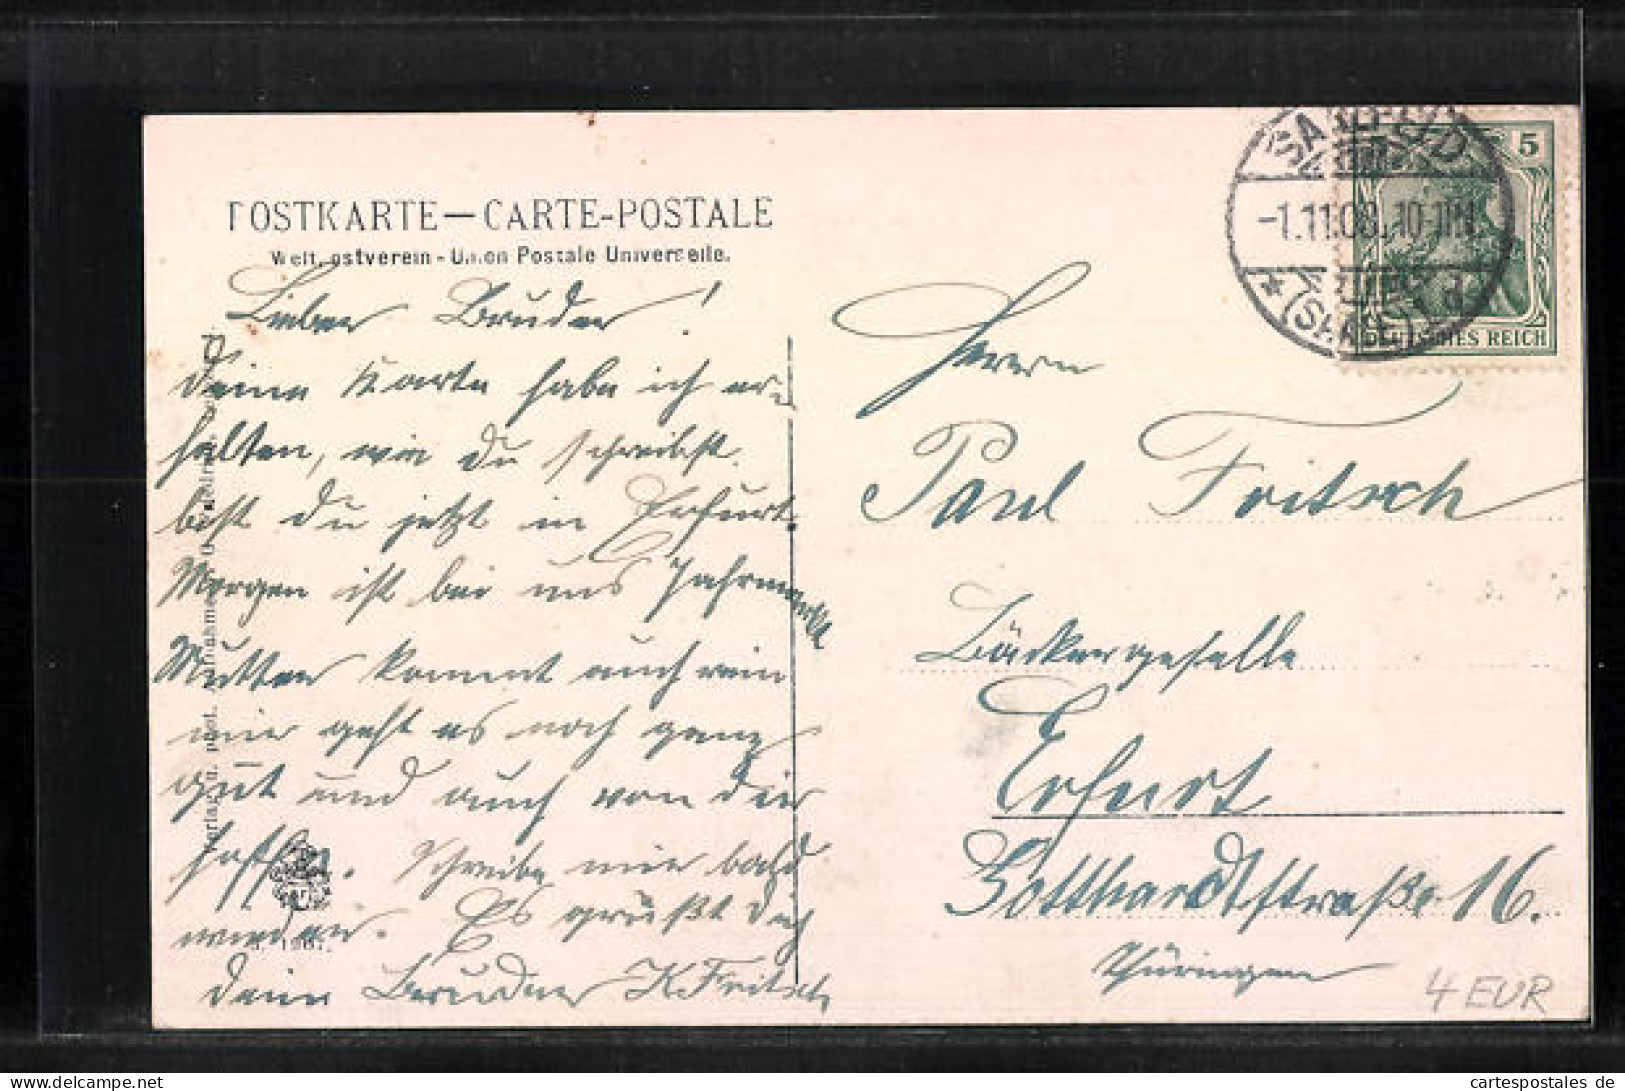 POSTKARTE — CARTE-POSTALE
Weltpostverein - Union Postale Universelle.
Lieber Bruder!
Deine Karte habe ich er-
halten, wie du schreibst
bist du jetzt in Erfurt.
Morgen ist bei uns Jahrmarkt
Mutter kommt auch rein
mir geht es noch ganz
gut und auch von dir
hoffen. Schreibe mir bald
wieder. Es grüßt dich
dein Bruder K Fritsch
Verlag u. phot. Aufnahme
1907.
5
-1.11.08. 10-11N.
(SAALE)
DEUTSCHES REICH
Herrn
Paul Fritsch
Bäckergeselle
Erfurt
Gotthardtstraße 16.
Thüringen
4 EUR
cartespostales de